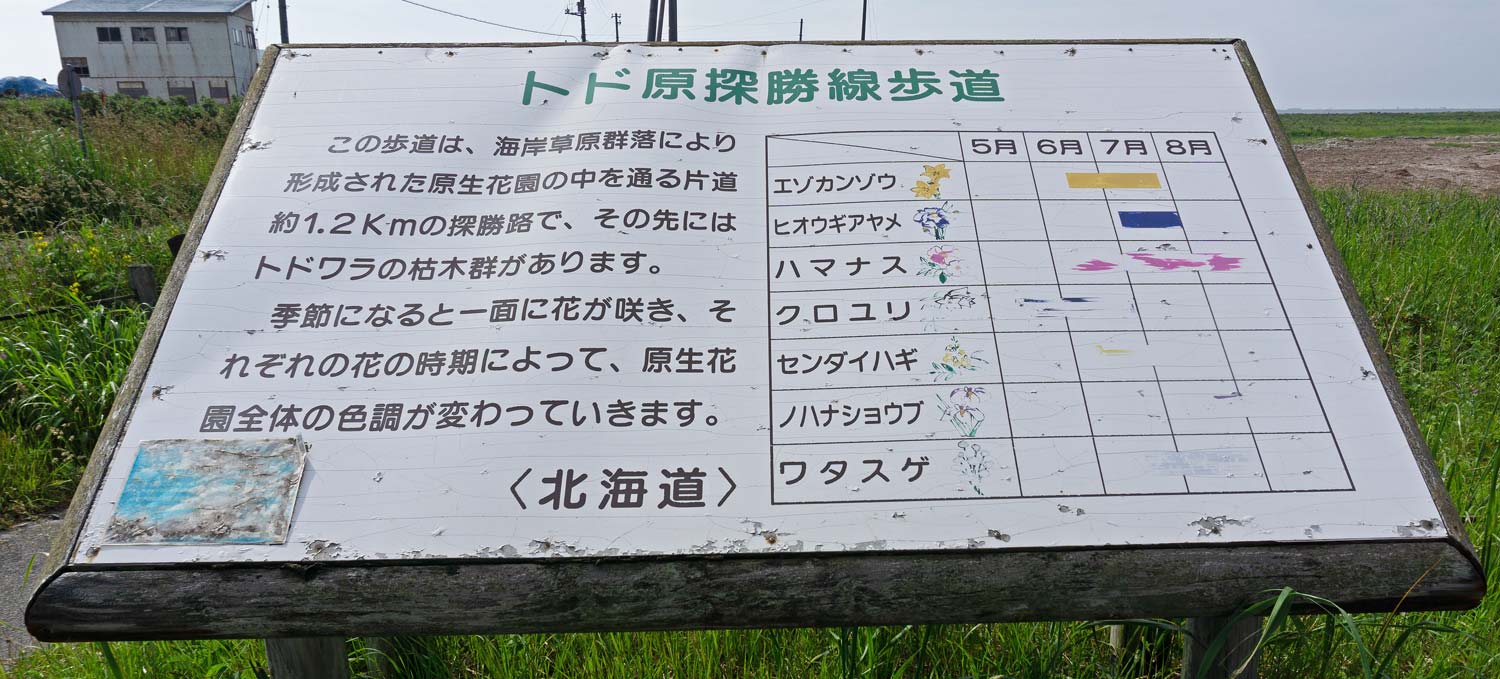 トド原探勝線歩道
この歩道は、海岸草原群落により
形成された原生花園の中を通る片道
約1.2Kmの探勝路で、その先には
トドワラの枯木群があります。
季節になると一面に花が咲き、そ
れぞれの花の時期によって、原生花
園全体の色調が変わっていきます。
〈北海道〉
5月 6月 7月 8月
エゾカンゾウ
ヒオウギアヤメ
ハマナス
クロユリ
センダイハギ
ノハナショウブ
ワタスゲ